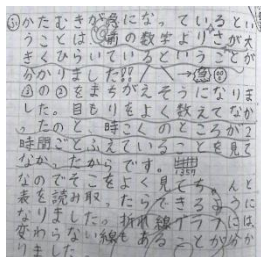 かたむきが急になっているとい
うことは、前の数字よりさが大
きくひらいているということが
分かりました!!
②の②をまちがえそうになりま
した。目もりをよく数えてなか
ったのと、時こくのところが2
時間ごとふえていることを見て
なかったからです。
なのでそこをよく見てちゃんと
表を読み取ったらできるように
なりました。折れ線グラフには、
変わらない線もあることが分か
りました。